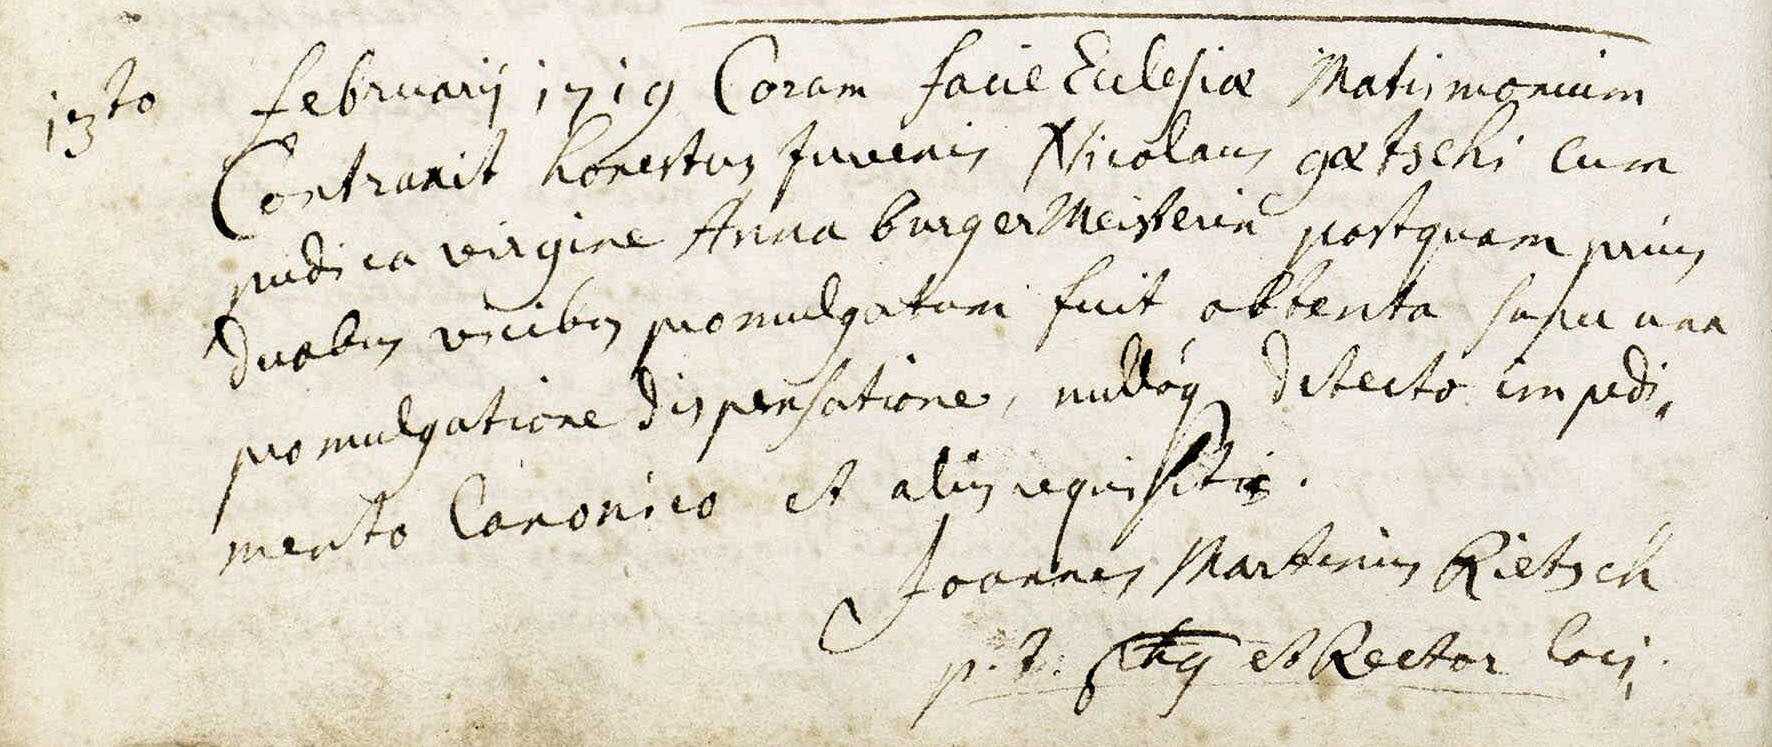 13to februarij 1719 Coram facie Ecclesiæ Matrimonium
Contraxit honestus Juvenis Nicolaus gœtschi cum
pudica virgine Anna burgerMeisterin postquam prius
duabus vicibus promulgatum fuit obtenta super una
promulgatione dispensatione, nullóq detecto impedi,
mento Canonico et aliis requisitis.
Joannes Martinus Rietsch
p. t. et Rector loci.